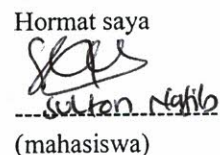 Hormat saya
Sulton Nafib
(mahasiswa)